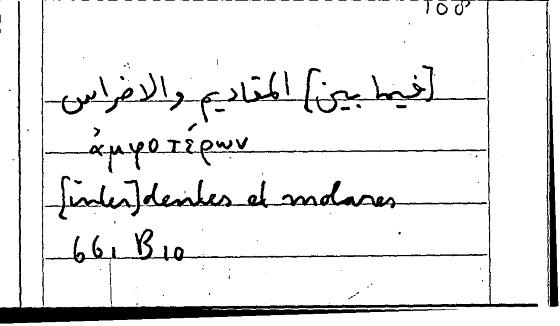 [فيما بين] المقاديم والاضراس
ἀμφοτέρων
[inter] dentes et molares
661 B10